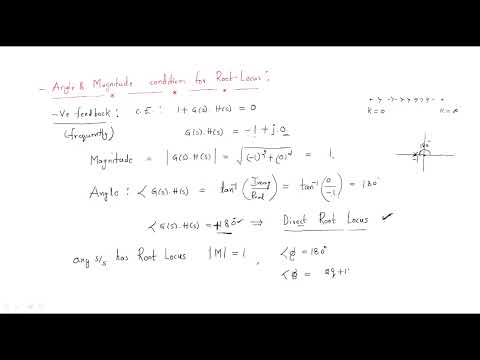 - Angle & Magnitude condition for Root-Locus :
-Ve feedback : C.E : 1 + G(s). H(s) = 0
K=0 K=∞
(frequently) G(s). H(s) = -1 + j.0
180°
Magnitude = |G(s).H(s)| = √((-1)² + (0)²) = 1.
Angle : ∠ G(s).H(s) = tan⁻¹(Imag/Real) = tan⁻¹(0/-1) = 180°
∠ G(s).H(s) = +180° ✓ ⇒ Direct Root Locus ✓
any s/s has Root Locus |M| = 1, ∠Ø = 180°
∠Ø = 2q+1